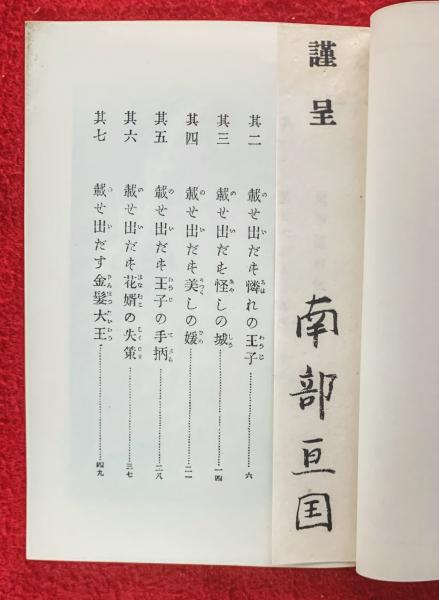 謹呈 南部亘国
其二 載せ出だす憐れの王子………六
其三 載せ出だす怪しの城………一四
其四 載せ出だす美しの媛………二一
其五 載せ出だす王子の手柄………二八
其六 載せ出だす花婿の失策………三七
其七 載せ出だす金髪大王………四九